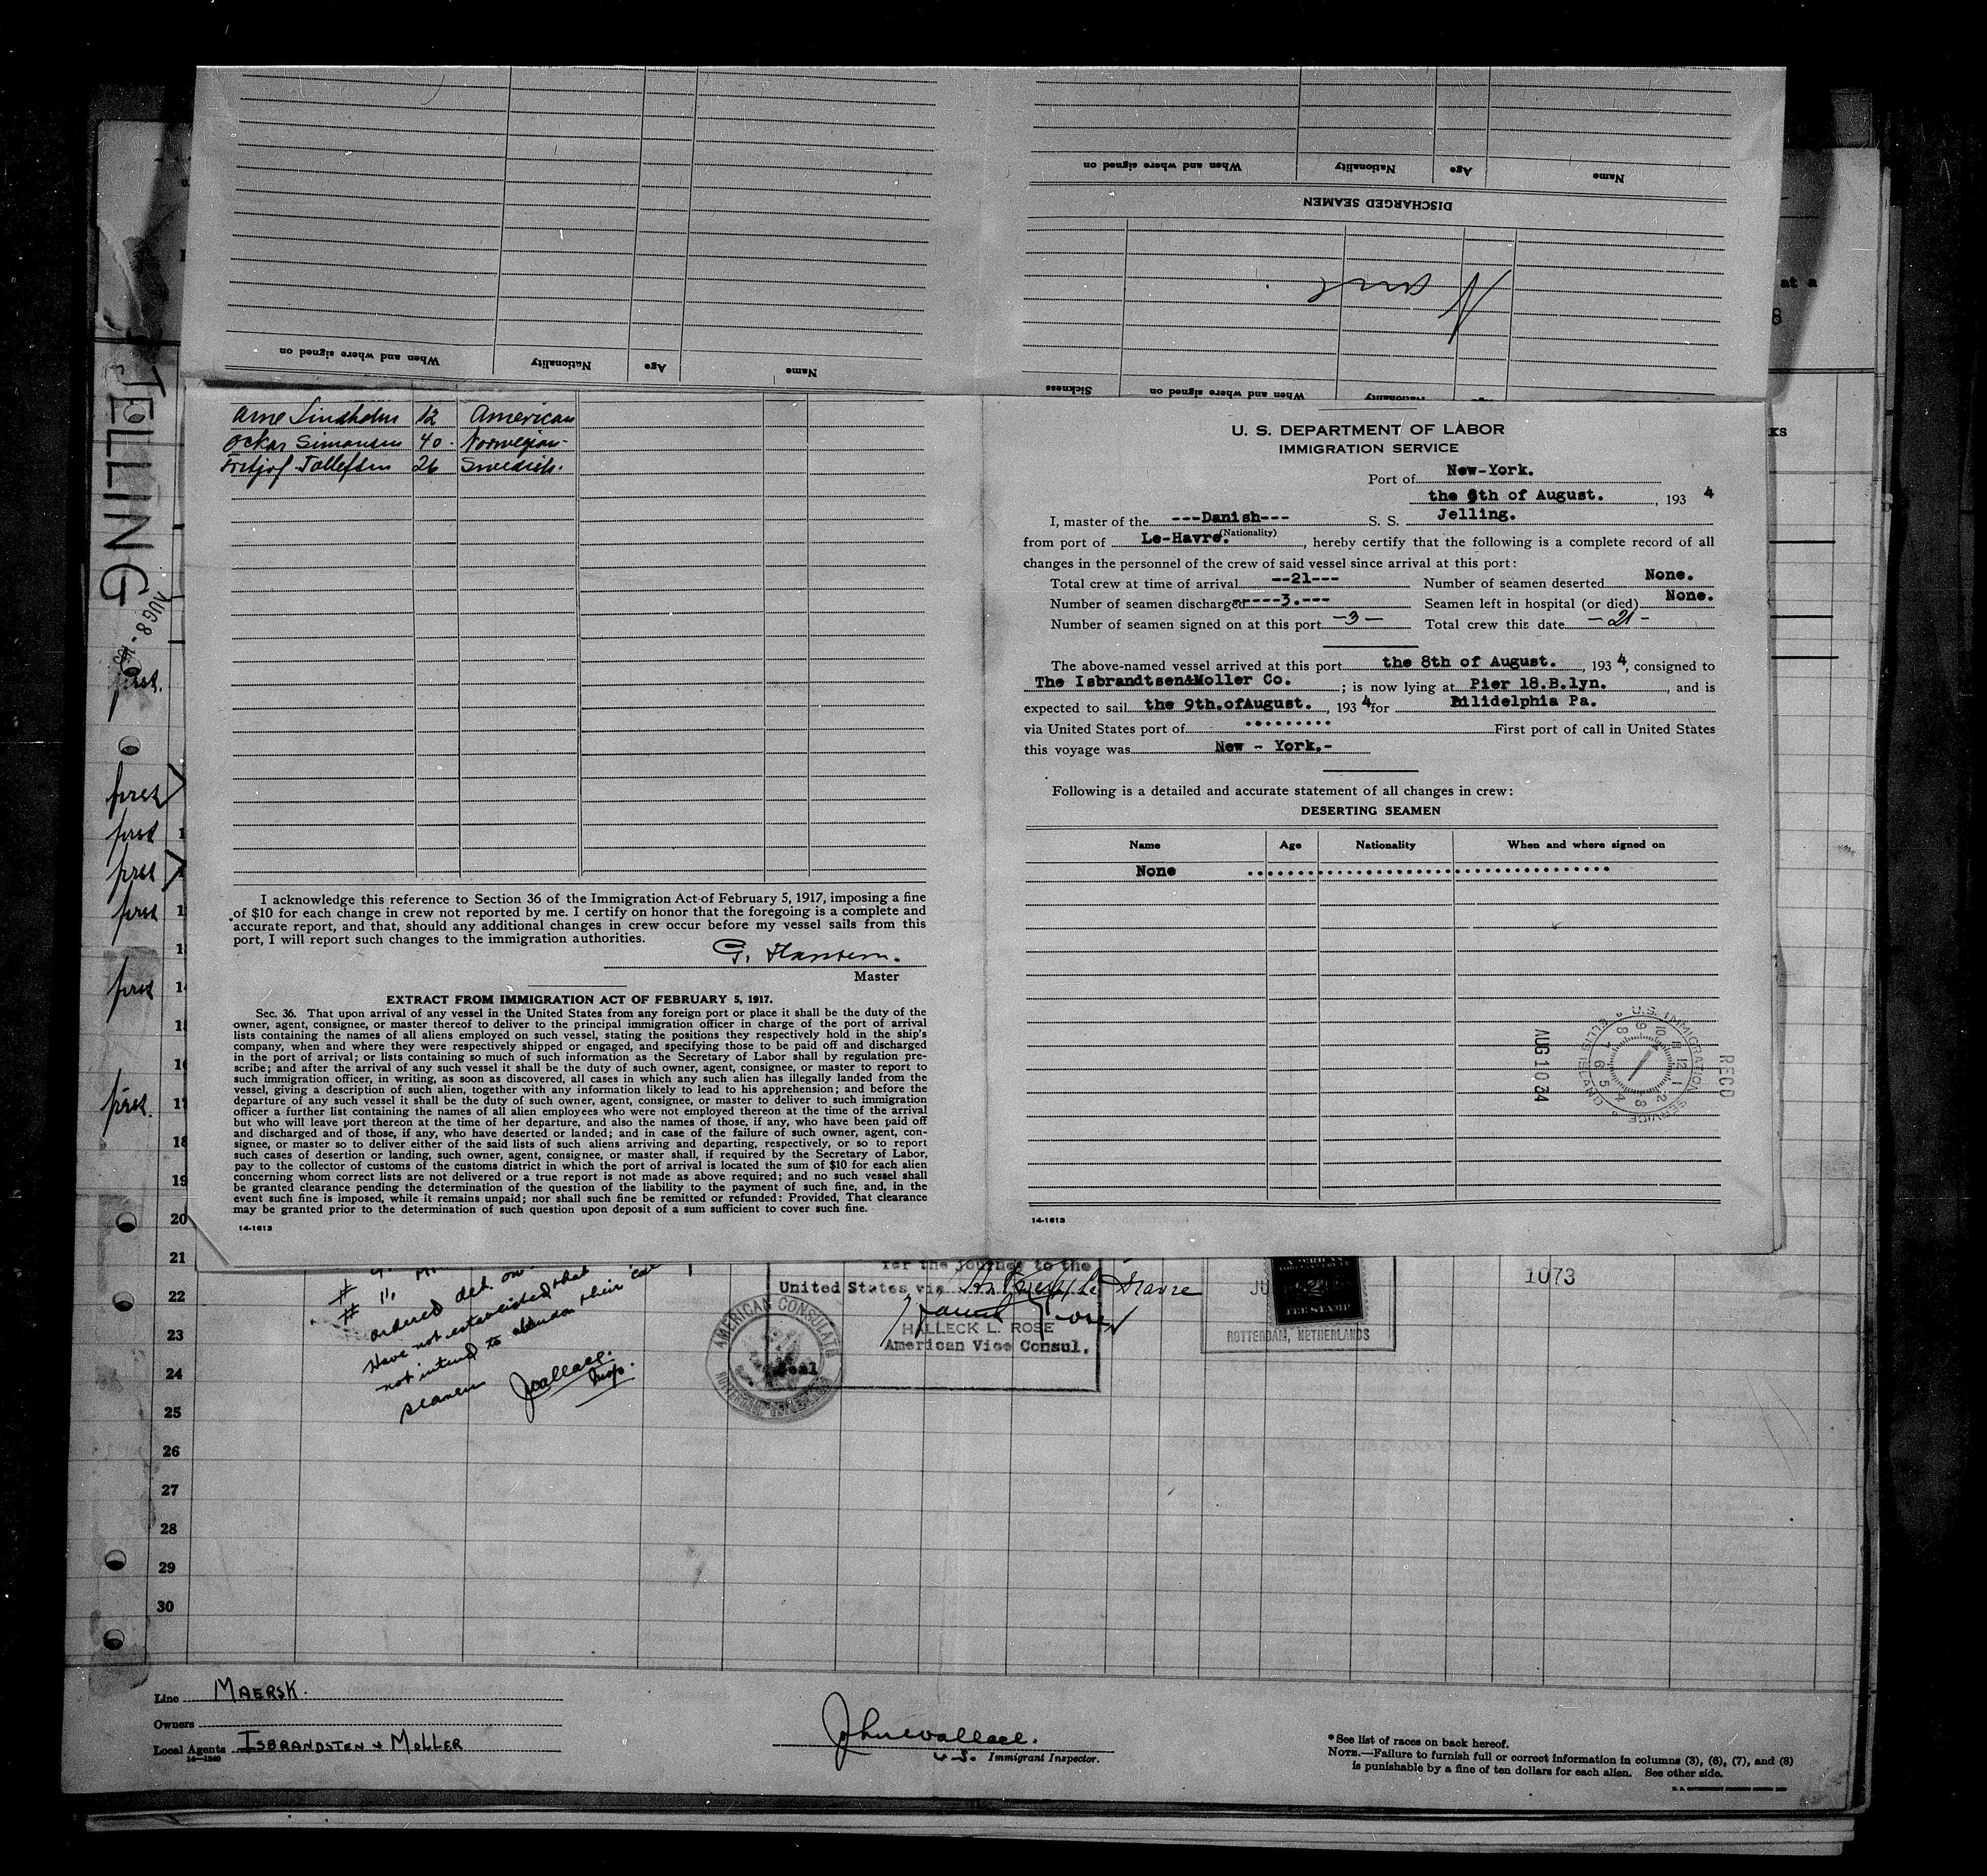 When and where signed on
Nationality
Age
Name
Name
Age
Nationality
When and where signed on
DISCHARGED SEAMEN
None
When and where signed on
Sickness
JELLING
AUG 8 -
at a
8
ks
Arne Lindholm 12 American
Oskar Simonsen 40. Norwegian-
Fritjof Tolleftsen 26 Swedish.
I acknowledge this reference to Section 36 of the Immigration Act of February 5, 1917, imposing a fine
of $10 for each change in crew not reported by me. I certify on honor that the foregoing is a complete and
accurate report, and that, should any additional changes in crew occur before my vessel sails from this
port, I will report such changes to the immigration authorities.
G. Hansen.
Master
EXTRACT FROM IMMIGRATION ACT OF FEBRUARY 5, 1917.
Sec. 36. That upon arrival of any vessel in the United States from any foreign port or place it shall be the duty of the
owner, agent, consignee, or master thereof to deliver to the principal immigration officer in charge of the port of arrival
lists containing the names of all aliens employed on such vessel, stating the positions they respectively hold in the ship's
company, when and where they were respectively shipped or engaged, and specifying those to be paid off and discharged
in the port of arrival; or lists containing so much of such information as the Secretary of Labor shall by regulation pre-
scribe; and after the arrival of any such vessel it shall be the duty of such owner, agent, consignee, or master to report to
such immigration officer, in writing, as soon as discovered, all cases in which any such alien has illegally landed from the
vessel, giving a description of such alien, together with any information likely to lead to his apprehension; and before the
departure of any such vessel it shall be the duty of such owner, agent, consignee, or master to deliver to such immigration
officer a further list containing the names of all alien employees who were not employed thereon at the time of the arrival
but who will leave port thereon at the time of her departure, and also the names of those, if any, who have been paid off
and discharged and of those, if any, who have deserted or landed; and in case of the failure of such owner, agent, con-
signee, or master so to deliver either of the said lists of such aliens arriving and departing, respectively, or so to report
such cases of desertion or landing, such owner, agent, consignee, or master shall, if required by the Secretary of Labor,
pay to the collector of customs of the customs district in which the port of arrival is located the sum of $10 for each alien
concerning whom correct lists are not delivered or a true report is not made as above required; and no such vessel shall
be granted clearance pending the determination of the question of the liability to the payment of such fine, and, in the
event such fine is imposed, while it remains unpaid; nor shall such fine be remitted or refunded: Provided, That clearance
may be granted prior to the determination of such question upon deposit of a sum sufficient to cover such fine.
14-1613
U. S. DEPARTMENT OF LABOR
IMMIGRATION SERVICE
Port of New-York.
the 8th of August. , 193 4
I, master of the ---Danish--- S. S. Jelling.
(Nationality)
from port of Le-Havre. , hereby certify that the following is a complete record of all
changes in the personnel of the crew of said vessel since arrival at this port:
Total crew at time of arrival --21--- Number of seamen deserted None.
Number of seamen discharged ----3.--- Seamen left in hospital (or died) None.
Number of seamen signed on at this port -3- Total crew this date -21-
The above-named vessel arrived at this port the 8th of August. , 193 4, consigned to
The Isbrandtsen&Moller Co. ; is now lying at Pier 18.B.lyn. , and is
expected to sail the 9th.ofAugust. , 193 4 for Philidelphia Pa.
via United States port of ......... First port of call in United States
this voyage was New - York.-
Following is a detailed and accurate statement of all changes in crew:
DESERTING SEAMEN
Name Age Nationality When and where signed on
None
U.S. IMMIGRATION SERVICE ELLIS ISLAND
AUG 10 34
RECD
14-1613
pres.
pres
pres
pres
pres
pres
pres.
17
18
19
20
21
22
23
24
25
26
27
28
29
30
# 11,
ordered det. on
Have not established that
not intend to abandon their
seamen
JWallace.
Insp.
for the journey to the
United States via Antwerp, Le Havre
HALLECK L. ROSE
American Vice Consul.
AMERICAN CONSULATE
Seal
FEE STAMP
ROTTERDAM, NETHERLANDS
1073
Line MAERSK.
Owners
Local Agents ISBRANDSTEN & MOLLER
14-1240
John Wallace.
U.S. Immigrant Inspector.
*See list of races on back hereof.
NOTE.—Failure to furnish full or correct information in columns (3), (6), (7), and (8)
is punishable by a fine of ten dollars for each alien. See other side.